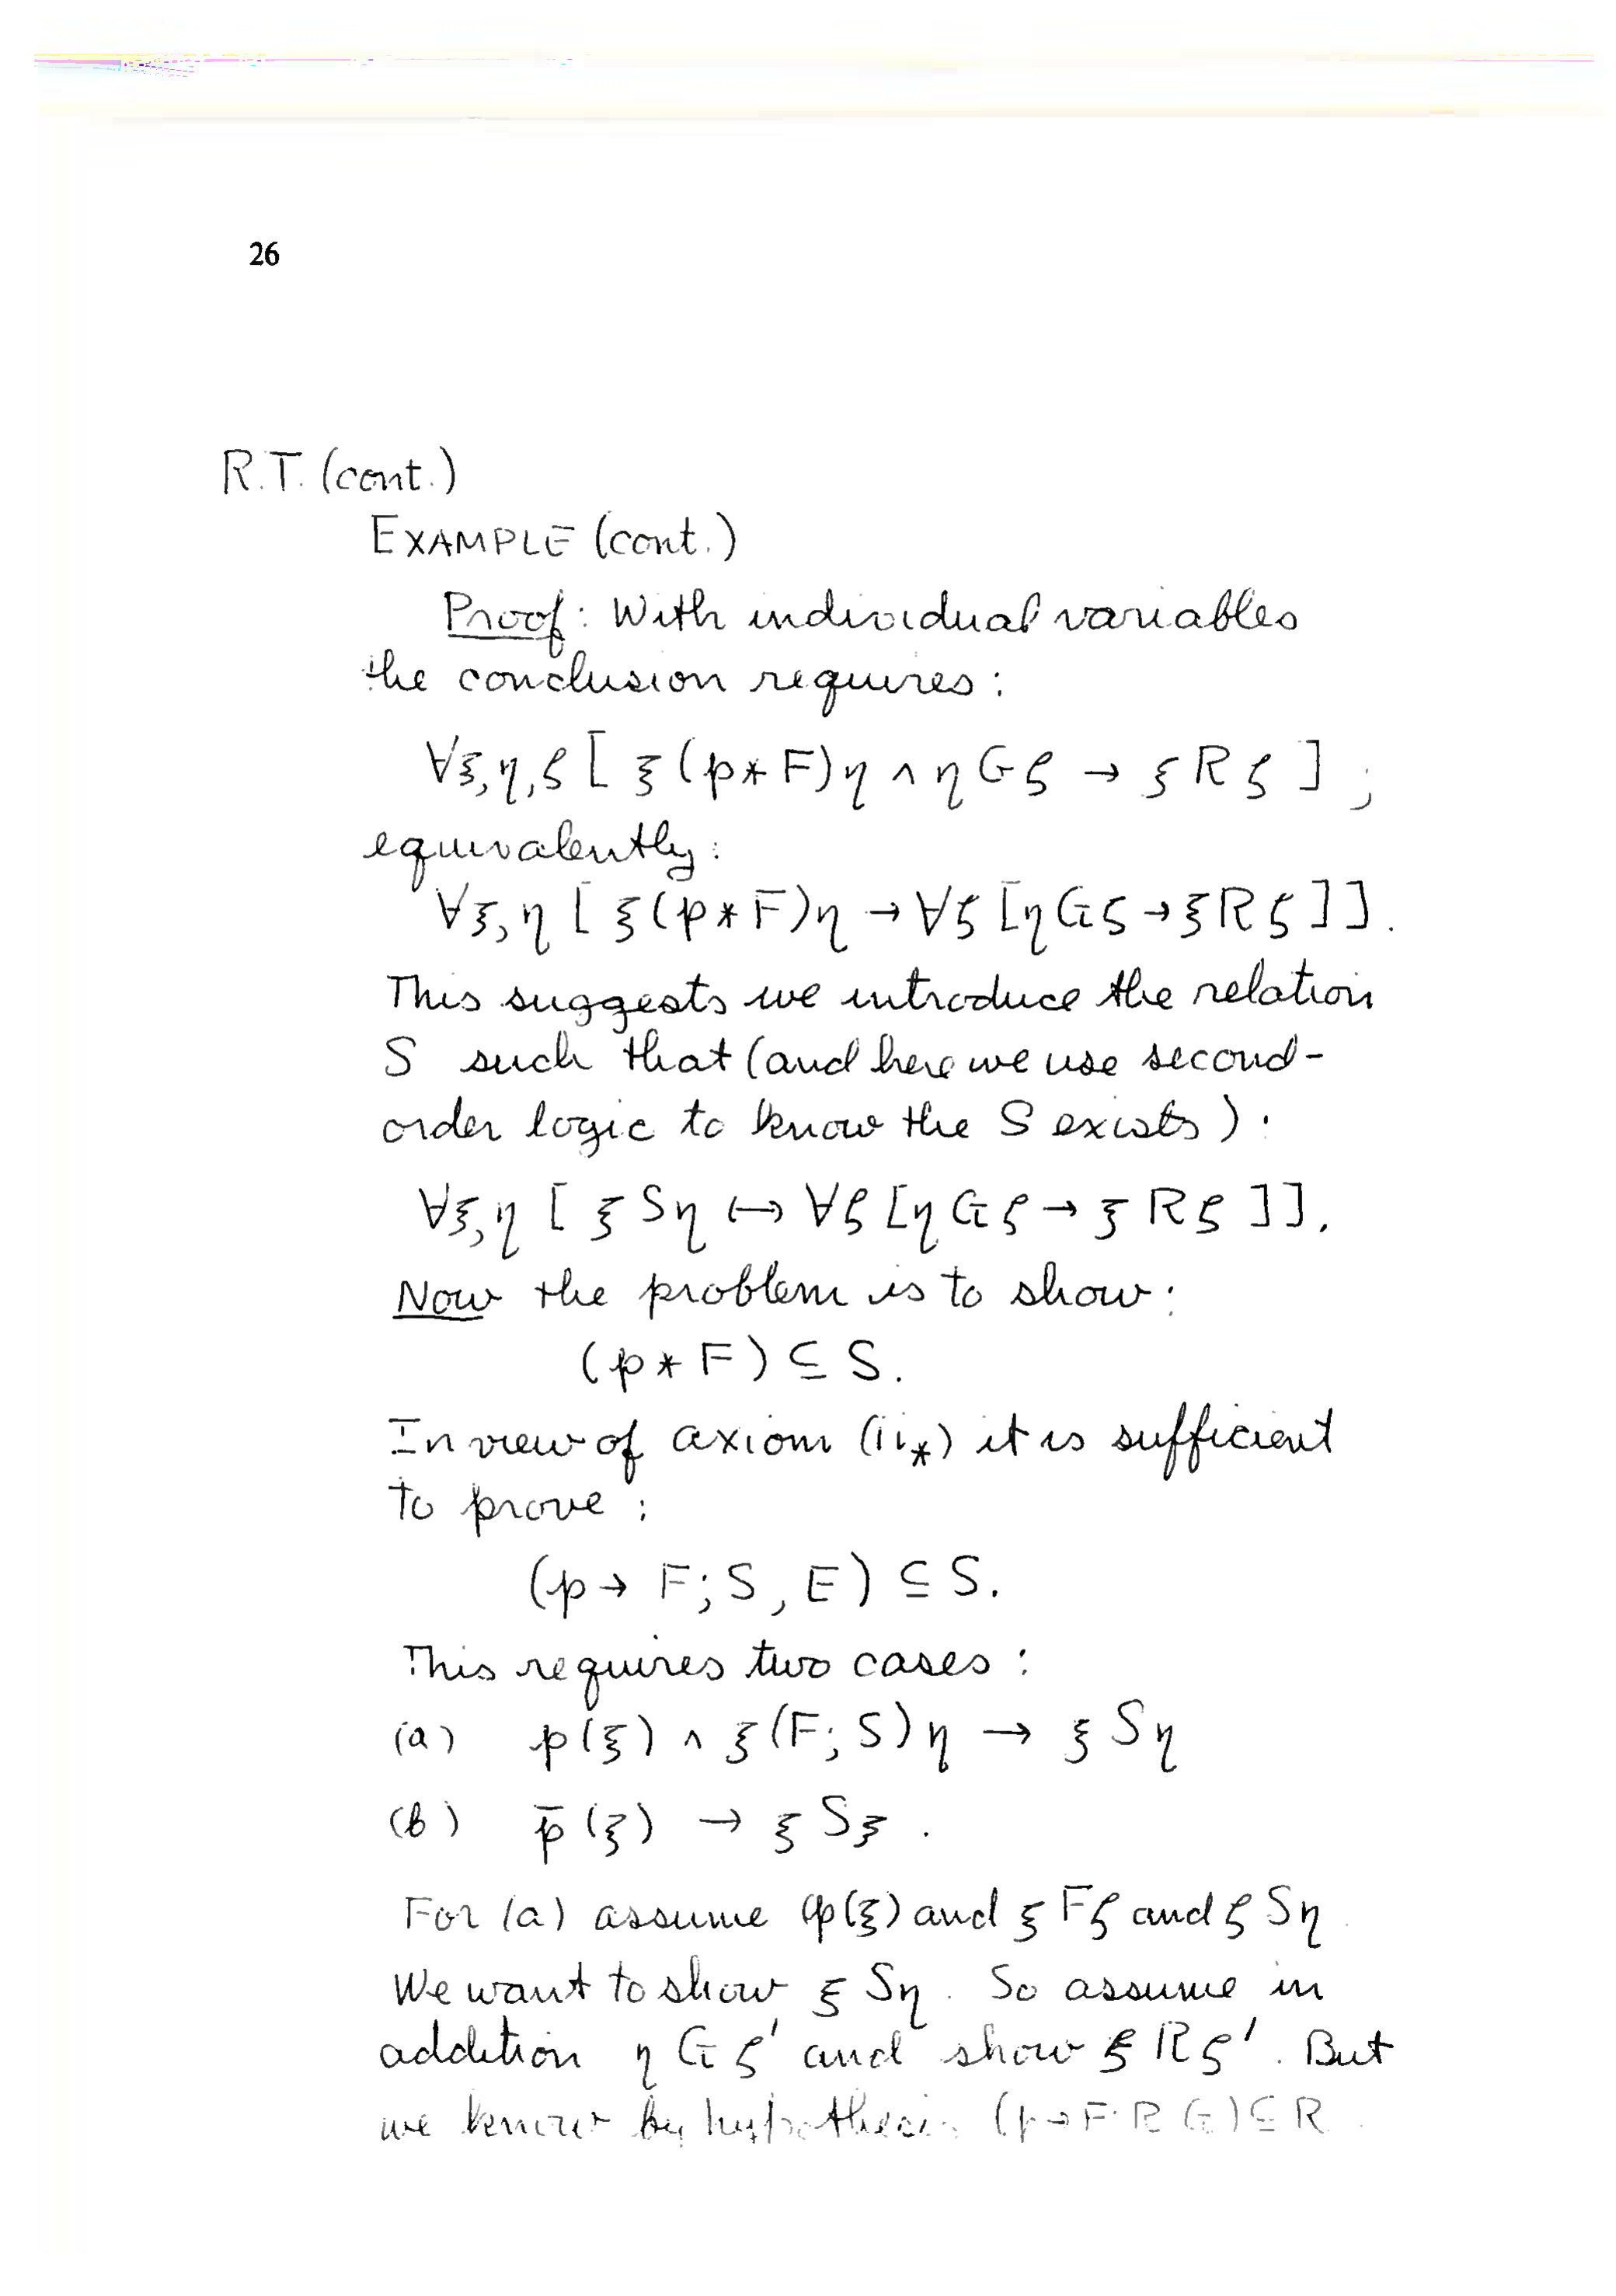 26
R.T. (cont.)
EXAMPLE (cont.)
Proof: With individual variables
the conclusion requires:
∀ξ,η,ζ [ ξ(p*F)η ∧ ηGζ → ξRζ ];
equivalently:
∀ξ,η [ ξ(p*F)η → ∀ζ [ηGζ→ξRζ]].
This suggests we introduce the relation
S such that (and here we use second-
order logic to know the S exists):
∀ξ,η [ ξSη ↔ ∀ζ [ηGζ → ξRζ ]].
Now the problem is to show:
(p*F) ⊆ S.
In view of axiom (ii*) it is sufficient
to prove:
(p → F;S, E) ⊆ S.
This requires two cases:
(a) p(ξ) ∧ ξ(F;S)η → ξSη
(b) p̄(ξ) → ξSξ.
For (a) assume p(ξ) and ξFζ and ζSη.
We want to show ξSη. So assume in
addition ηGζ' and show ξRζ'. But
we know by hypothesis (p→F;R,G)⊆R.